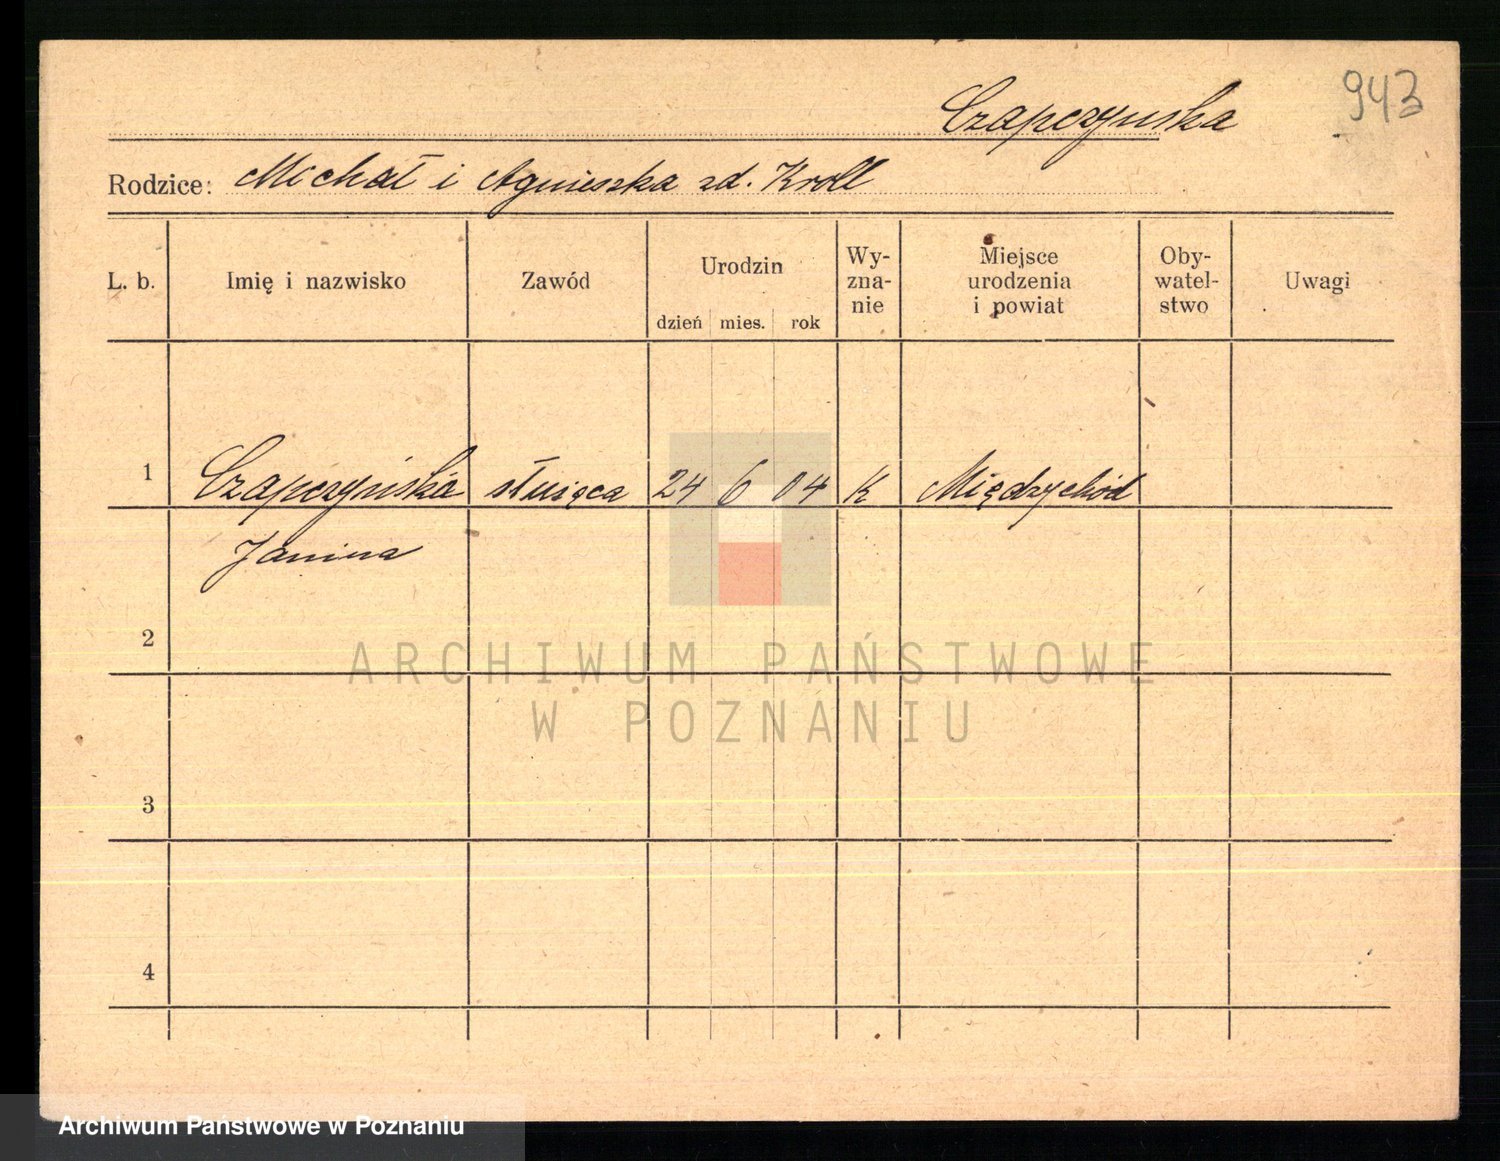 943
Czapczynska
Rodzice: Michał i Agnieszka zd. Kroll
L. b. Imię i nazwisko Zawód Urodzin dzień mies. rok Wy-znanie Miejsce urodzenia i powiat Oby-watel-stwo Uwagi
1 Czapczyńska służąca 24 6 04 K Międzychód
Janina
2
ARCHIWUM PAŃSTWOWE
W POZNANIU
3
4
Archiwum Państwowe w Poznaniu